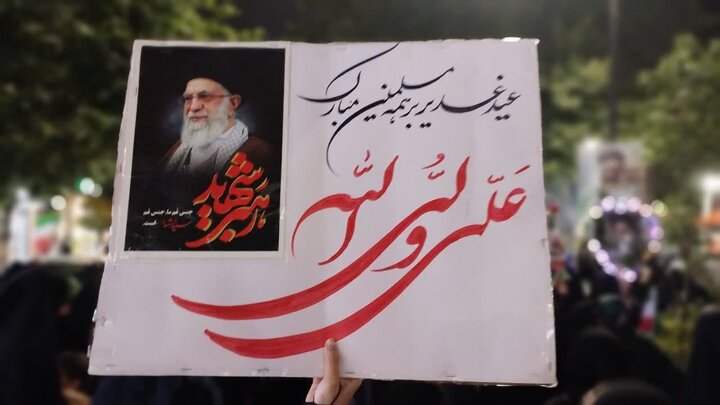 عید غدیر بر همه مسلمین مبارک
علی ولی الله
رهبر شهید